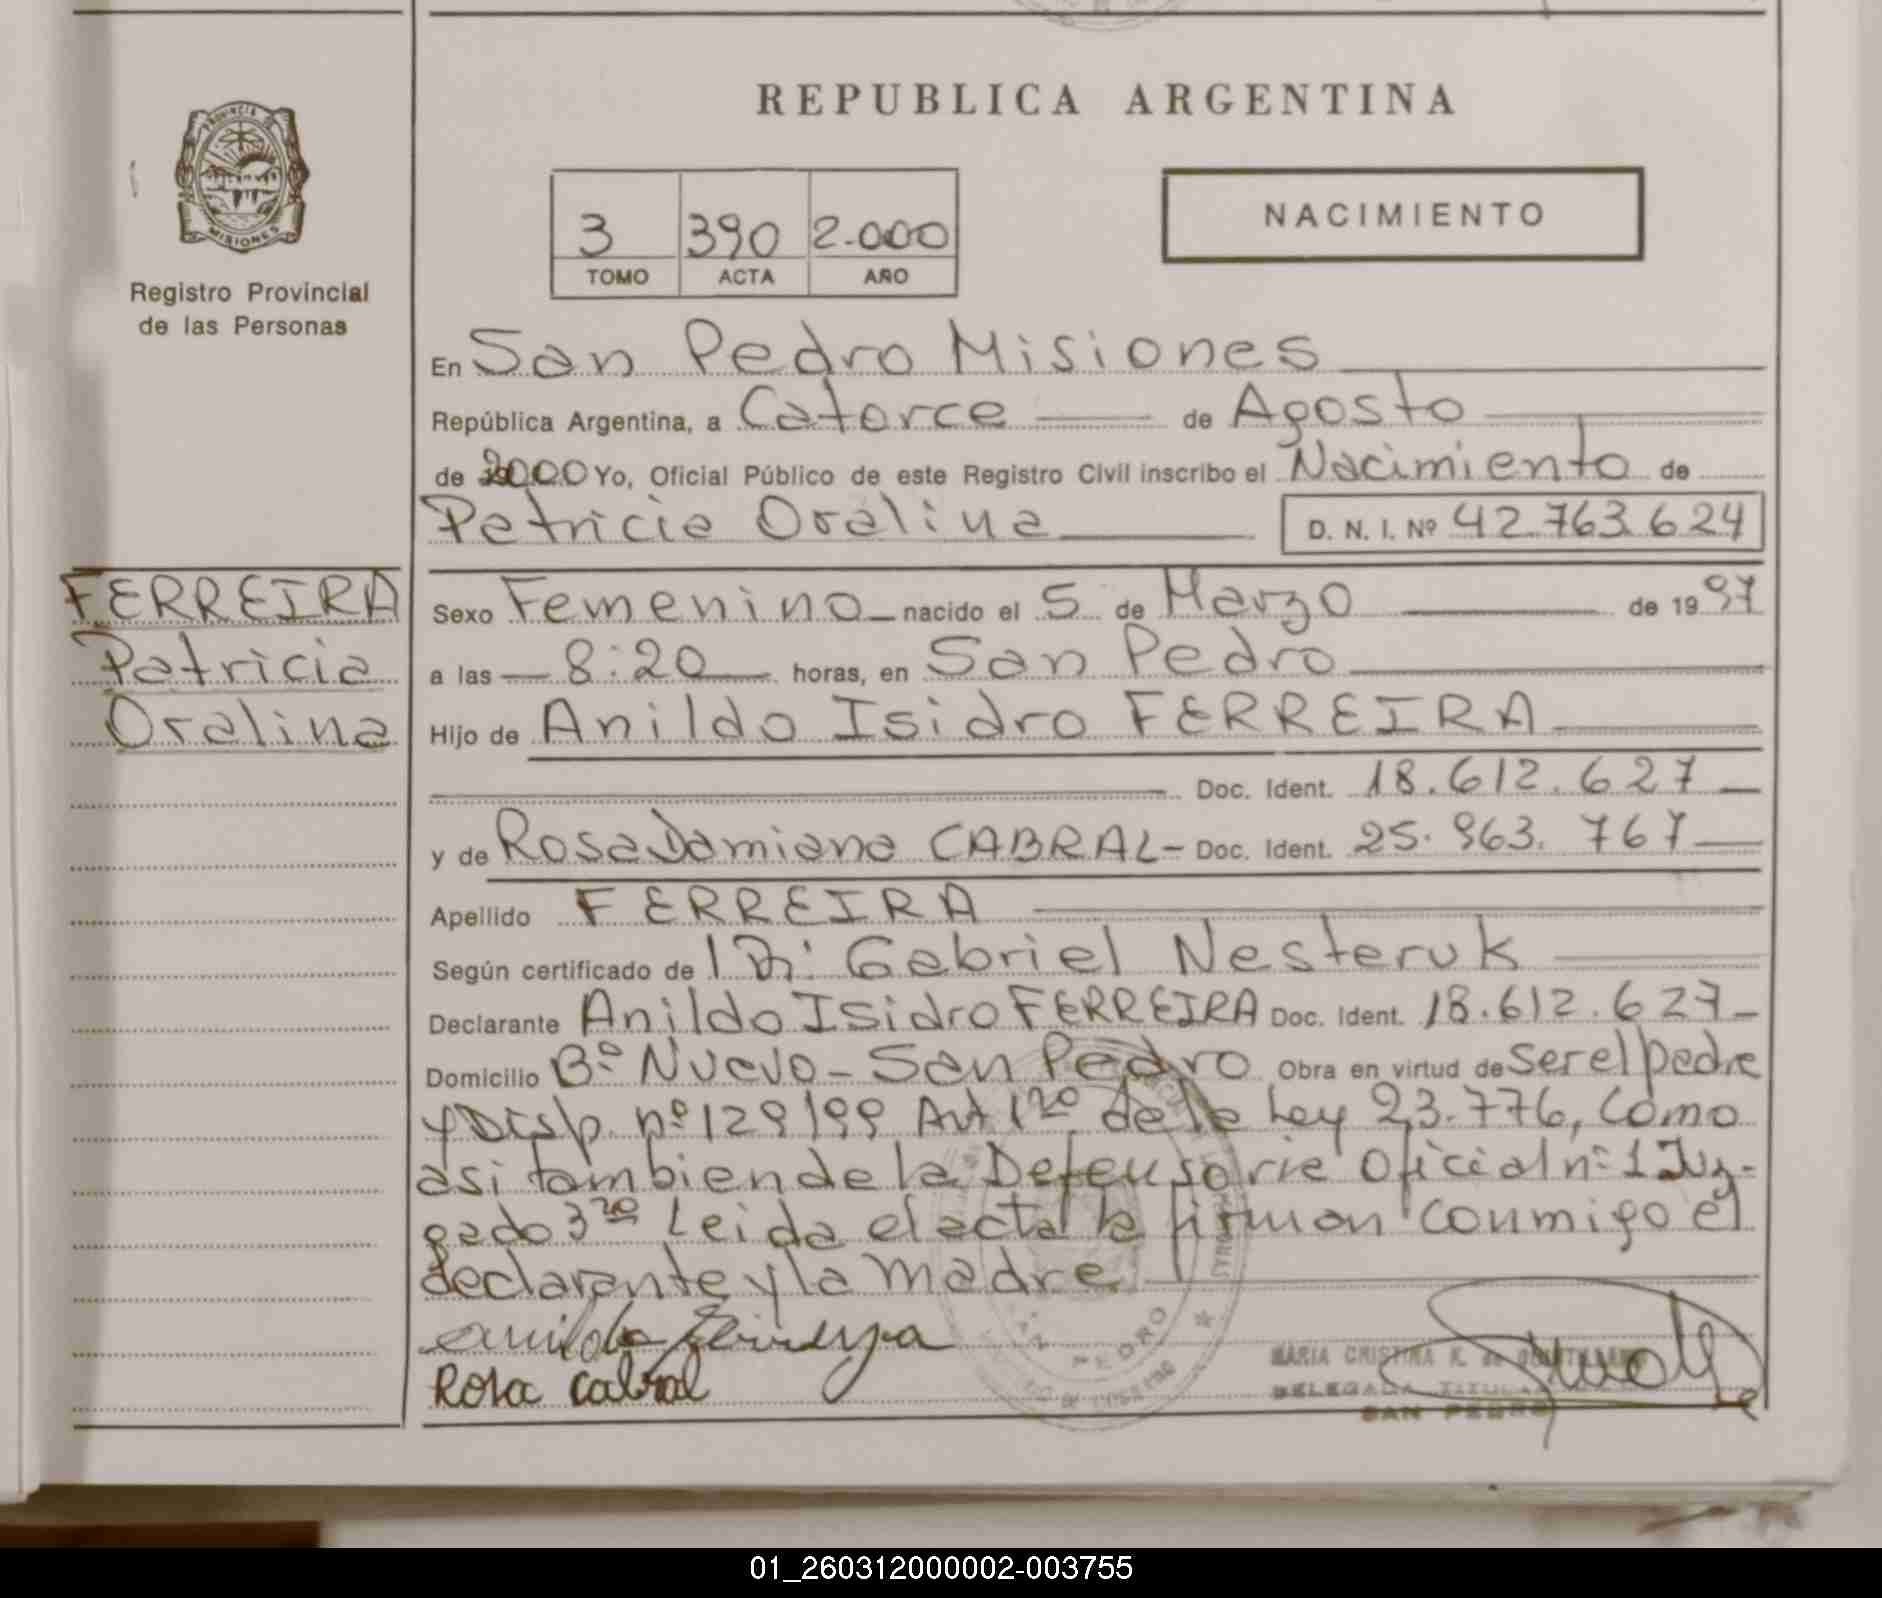 REPUBLICA ARGENTINA
PROVINCIA DE
MISIONES
Registro Provincial
de las Personas
3 390 2.000
TOMO ACTA AÑO
NACIMIENTO
En San Pedro Misiones
República Argentina, a Catorce de Agosto
de 2000 Yo, Oficial Público de este Registro Civil inscribo el Nacimiento de
Patricia Oralina D. N. I. Nº 42.763.624
FERREIRA
Patricia
Oralina
Sexo Femenino nacido el 5 de Marzo de 1997
a las 8:20 horas, en San Pedro
Hijo de Anildo Isidro FERREIRA
Doc. Ident. 18.612.627
y de Rosa Damiana CABRAL- Doc. Ident. 25.963.767
Apellido FERREIRA
Según certificado de Gabriel Nesteruk
Declarante Anildo Isidro FERREIRA Doc. Ident. 18.612.627-
Domicilio Bº Nuevo-San Pedro Obra en virtud de ser el padre
y Disp. nº 129/99 Art 1ro de la Ley 23.776, como
asi tambien de la Defensoria Oficial nº 1 Juz-
gado 3ro Leida el acta la firman conmigo el
declarante y la madre
Rosa Cabral
SAN PEDRO
MARIA CRISTINA K. de
DELEGADA TITULAR
SAN PEDRO
01_260312000002-003755